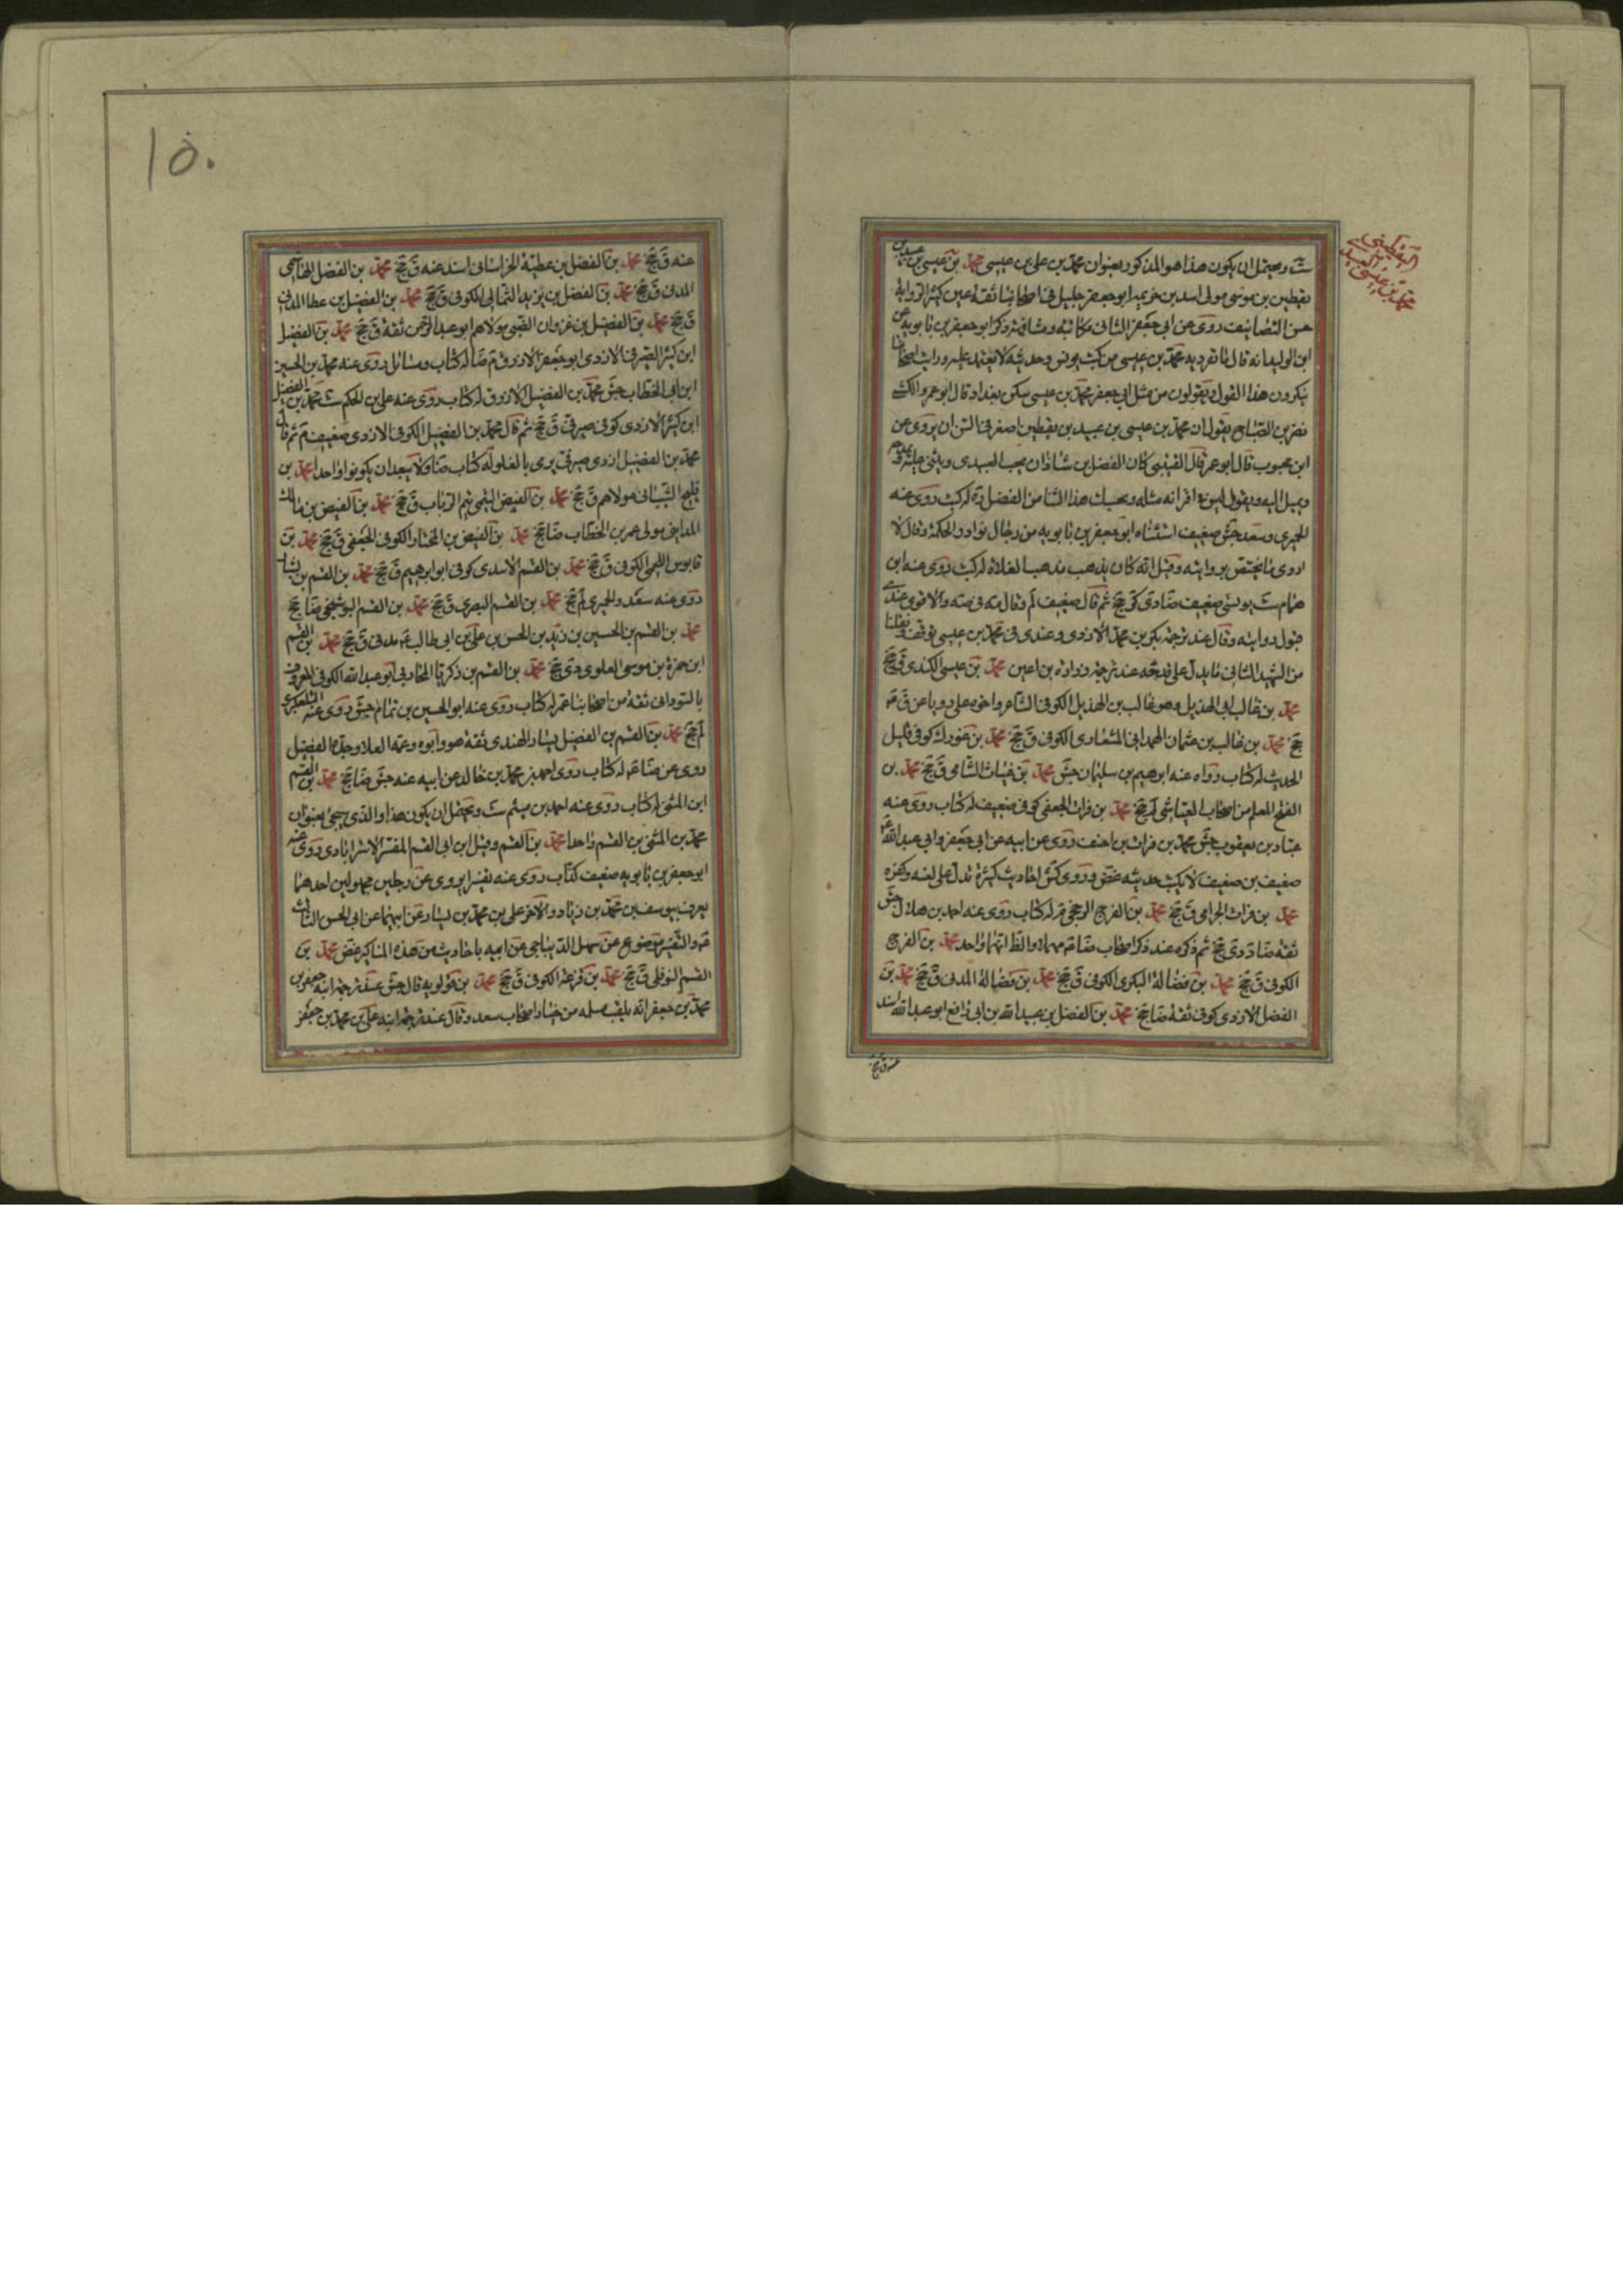 ست ويحتمل ان يكون هذا هو المذكور بعنوان محمد بن علي بن عيسى محمد بن عيسى بن عبيد بن
يقطين بن موسى مولى اسد بن خزيمه ابو جعفر جليل في اصحابنا ثقة عين كثير الرواية
حسن التصانيف روى عن ابي جعفر الثاني مكاتبة ومشافهة ذكر ابو جعفر بن بابويه عن
ابن الوليد انه قال ما تفرد به محمد بن عيسى من كتب يونس وحديثه لا يعتمد عليه ورايت اصحابنا
ينكرون هذا القول ويقولون من مثل ابي جعفر محمد بن عيسى سكن بغداد قال ابو عمرو الكشي
نصر بن الصباح يقول ان محمد بن عيسى بن عبيد بن يقطين اصغر في السن ان يروى عن
ابن محبوب قال ابو عمر قال القتيبي كان الفضل بن شاذان يحب العبيدي ويثني عليه ويمدحه
ويميل اليه ويقول ليس في اقرانه مثله وبحسبك هذا الثنا من الفضل ره له كتب روى عنه
الحميري وسعد جش ضعيف استثناه ابو جعفر بن بابويه من رجال نوادر الحكمة وقال لا
اروى ما يختص بروايته وقيل انه كان يذهب مذهب الغلاة له كتب روى عنه ابن
همام ست يونسي ضعيف ضا دي كر جخ ثم قال ضعيف لم وقال مه في صه والاقوى عندي
قبول روايته وقال عند ترجمة بكر بن محمد الازدي وعندي في محمد بن عيسى توقف ونقلنا
من الشهيد الثاني ما يدل على قدحه عند ترجمة زرارة بن اعين محمد بن عيسى الكندي ق جخ
محمد بن غالب ابي الهذيل وهو غالب بن الهذيل الكوفي الشاعر واخوه علي رويا عن ق عم
جخ محمد بن غالب بن عثمان الهمداني المشعاري الكوفي ق جخ محمد بن غورك كوفي قليل
الحديث له كتاب رواه عنه ابراهيم بن سليمان جش محمد بن غياث الشامي ق جخ محمد بن
الفتح المعلم من اصحاب العياشي لم جخ محمد بن فرات الجعفي كوفي ضعيف له كتاب روى عنه
عباد بن يعقوب جش محمد بن فرات بن احنف روى عن ابيه عن ابي جعفر وابي عبد الله عم
ضعيف بن ضعيف لا يكتب حديثه غض وروى كش احاديث كثيرة تدل على لعنه وكفره
محمد بن فرات الجرامي ق جخ محمد بن الفرج الرخجي م له كتاب روى عنه احمد بن هلال جش
ثقة ضا د دي جخ ثم ذكره عند ذكر اصحاب ضا والظ انهما واحد محمد بن الفرج
الكوفي ق جخ محمد بن فضالة البكري الكوفي ق جخ محمد بن فضالة المدني ق جخ محمد بن
الفضل الازدي كوفي ثقة ضا جخ محمد بن الفضل بن عبيد الله بن ابي رافع ابو عبد الله اسند
عنه ق جخ
اليقطيني
محمد بن عيسى العبيدي
١٥٠
عنه ق جخ محمد بن الفضل بن عطية الخراساني اسند عنه ق جخ محمد بن الفضل الهاشمي
المدني ق جخ محمد بن الفضل بن يزيد الثمالي الكوفي ق جخ محمد بن الفضيل بن عطا المدني
ق جخ محمد بن الفضيل بن غزوان الضبي مولاهم ابو عبد الرحمن ثقة ق جخ محمد بن الفضيل
ابن كثير الصيرفي الازدي ابو جعفر الازرق م ضا له كتاب ومسائل روى عنه محمد بن الحسين
ابن ابي الخطاب جش محمد بن الفضيل الازرق له كتاب روى عنه علي بن الحكم ست محمد بن الفضيل
ابن كثير الازدي كوفي صيرفي ق جخ ثم قال محمد بن الفضيل الكوفي الازدي ضعيف م ثم قال
محمد بن الفضيل ازدي صيرفي يرمى بالغلو له كتاب ضا ولا يبعد ان يكونوا واحدا محمد بن
فليح الشيباني مولاهم ق جخ محمد بن الفيض التيمي تيم الرباب ق جخ محمد بن الفيض بن مالك
المدايني مولى عمر بن الخطاب ضا جخ محمد بن الفيض بن المختار الكوفي الجعفي ق جخ محمد بن
قابوس اللخمي الكوفي ق جخ محمد بن القسم الاسدي كوفي ابو ابراهيم ق جخ محمد بن القسم بن بشار
روى عنه سعد والحميري لم جخ محمد بن القسم البصري ق جخ محمد بن القسم البوشنجي ضا جخ
محمد بن القسم بن الحسين بن زيد بن الحسن بن علي بن ابي طالب عم مدني ق جخ محمد بن القسم
ابن حمزة بن موسى العلوي دي جخ محمد بن القسم بن زكريا المحاربي ابو عبد الله الكوفي المعروف
بالسوداني ثقة من اصحابنا عمر له كتاب روى عنه ابو الحسين بن تمام جش روى عنه التلعكبري
لم جخ محمد بن القسم بن الفضيل بن يسار الهندي ثقة هو وابوه وعمه العلا وجده الفضيل
روى عن ضا عم له كتاب روى احمد بن محمد بن خالد عن ابيه عنه جش ضا جخ محمد بن القسم
ابن المثنى له كتاب روى عنه احمد بن ميثم ست ويحتمل ان يكون هذا والذي سيجئ بعنوان
محمد بن المثنى بن القسم واحدا محمد بن القسم وقيل ابن ابي القسم المفسر الاسترابادي روى عنه
ابو جعفر بن بابويه ضعيف كذاب روى عنه تفسيرا يرويه عن رجلين مجهولين احدهما
يعرف بيوسف بن محمد بن زياد والاخر علي بن محمد بن يسار عن ابيهما عن ابي الحسن الثالث
عم والتفسير موضوع عن سهل الديباجي عن ابيه باحاديث من هذه المناكير غض محمد بن
القسم النوفلي ق جخ محمد بن قرعة الكوفي ق جخ محمد بن قولويه قال جش عند ترجمة ابنه جعفر بن
محمد بن جعفر انه يلقب مسلمه من خيار اصحاب سعد وقال عند ترجمة ابنه علي بن محمد بن جعفر